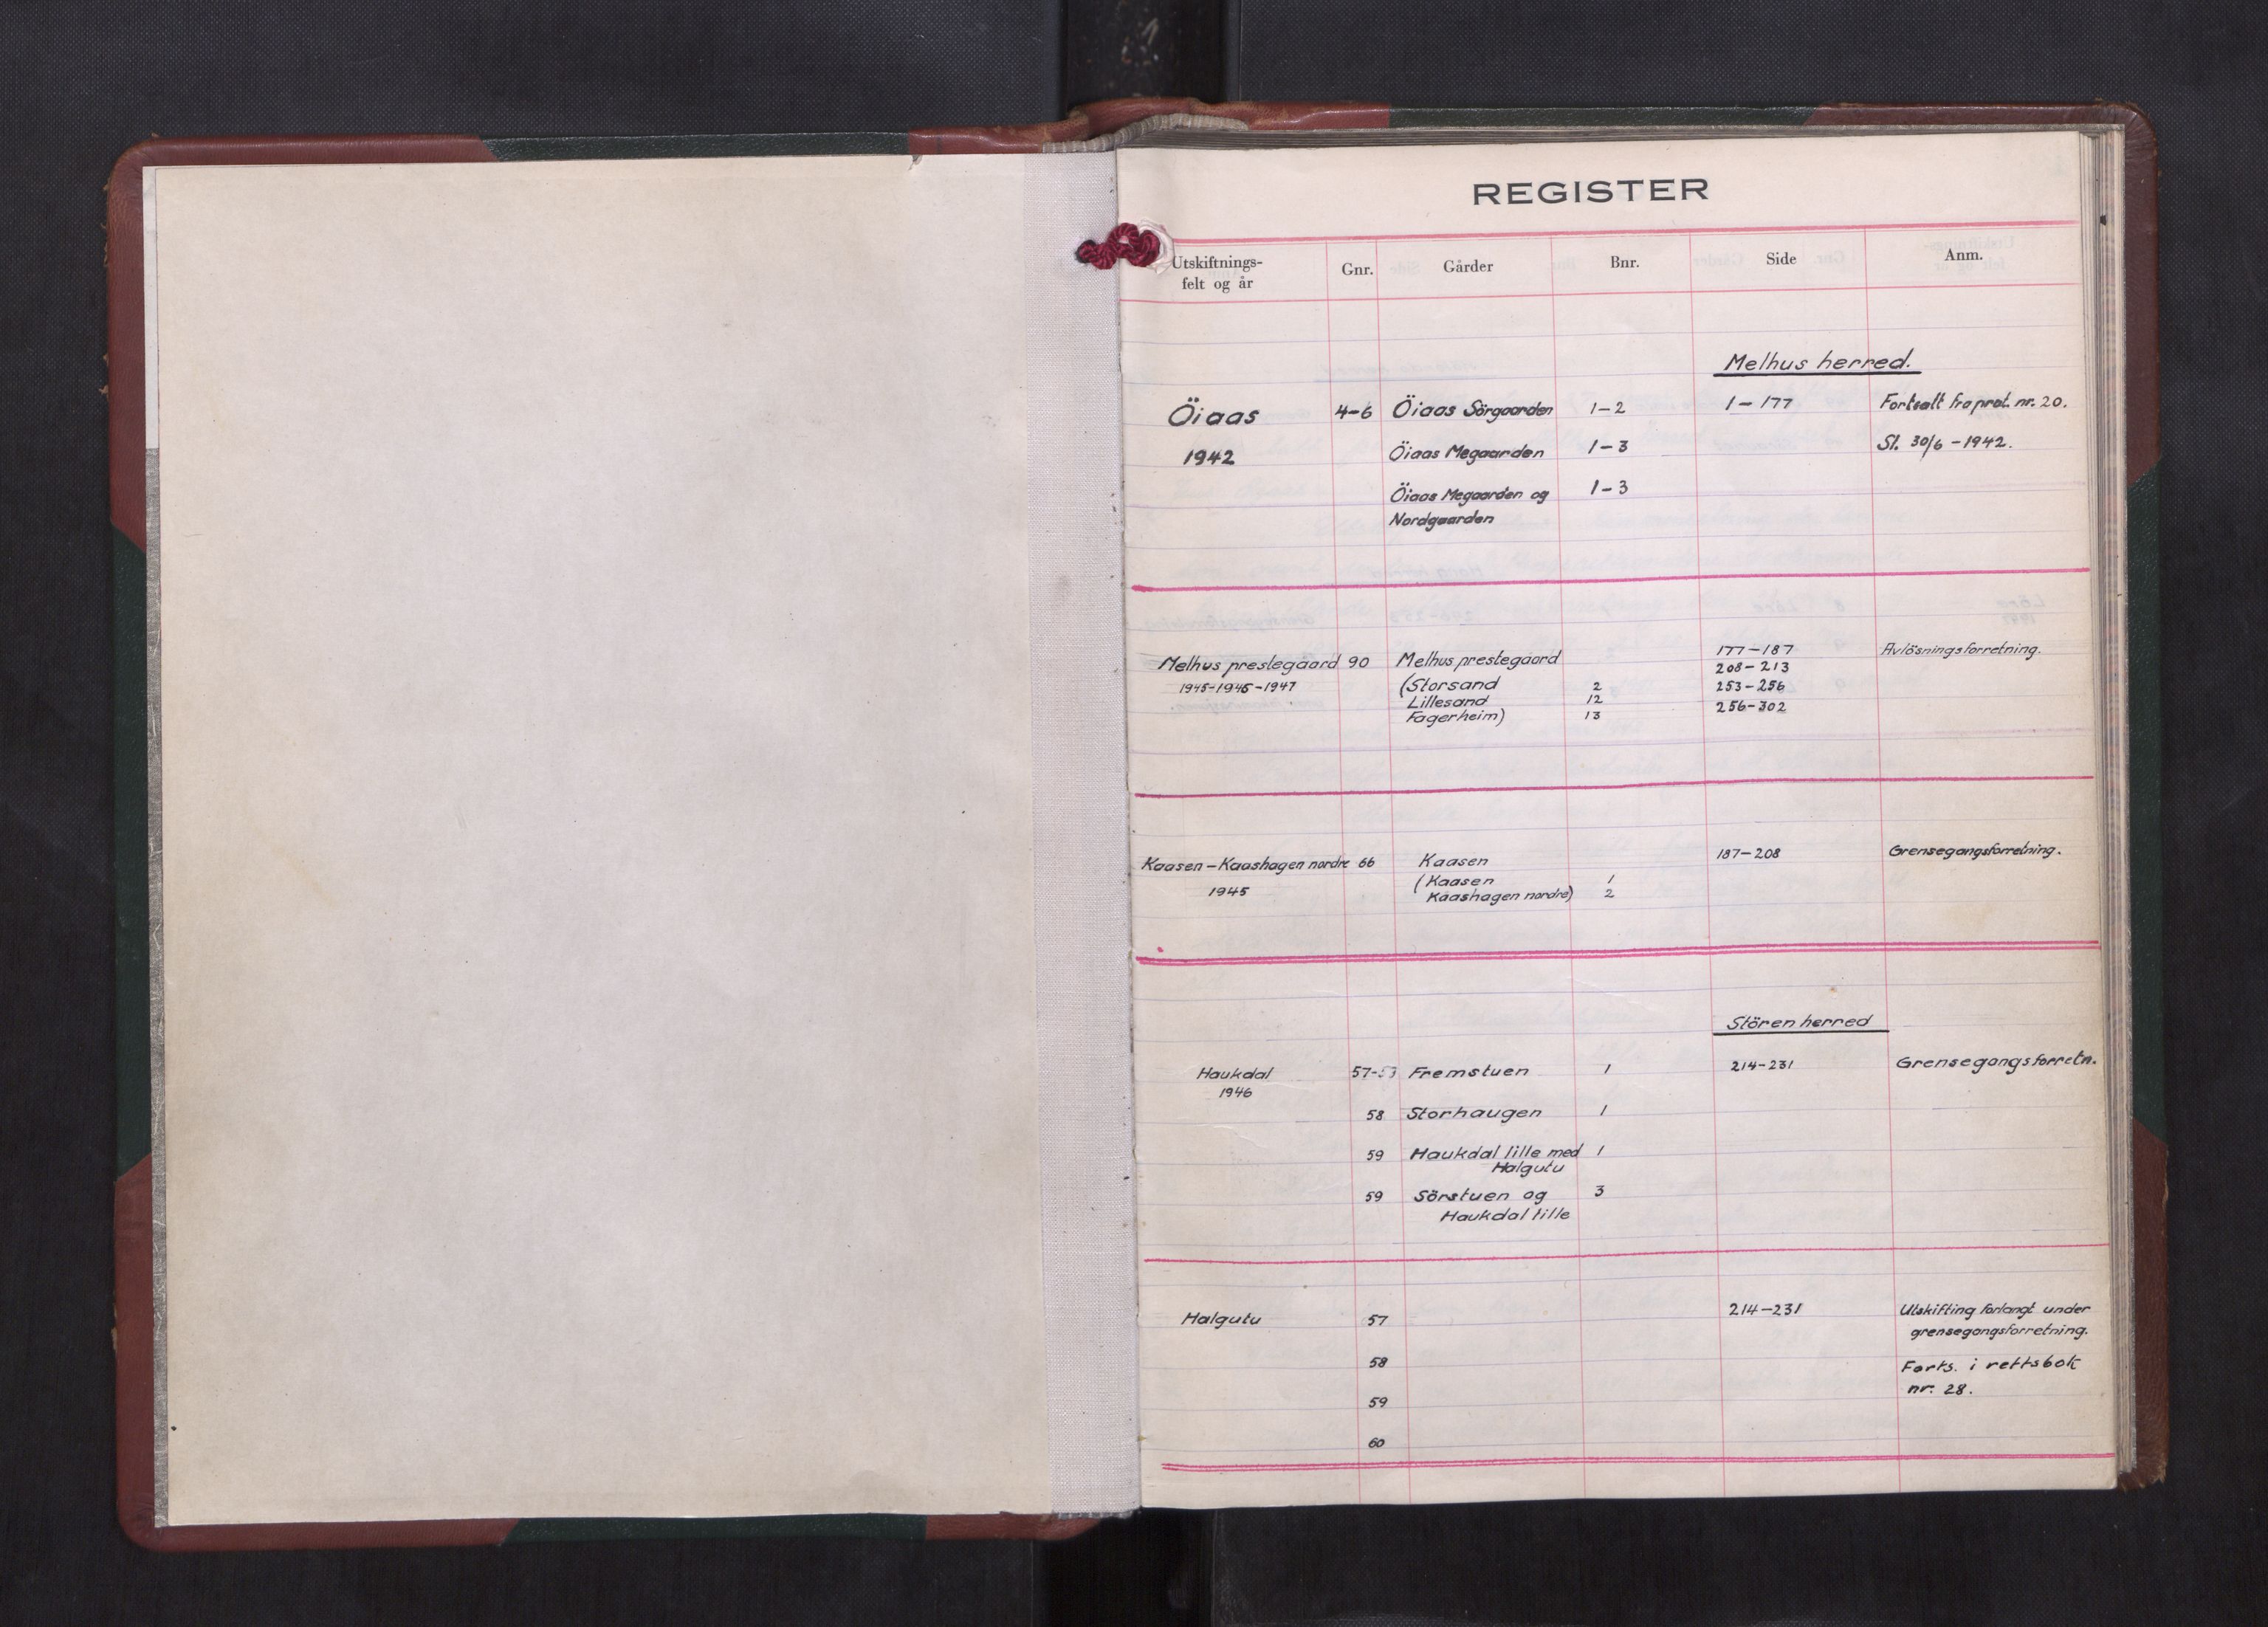 REGISTER
Utskiftnings-
felt og år
Gnr. Gårder Bnr. Side Anm.
Melhus herred.
Öiaas 4-6 Öiaas Sörgaarden 1-2 1-177 Fortsatt fra prot. nr. 20.
1942 Öiaas Megaarden 1-3 Sl. 30/6 -1942.
Öiaas Megaarden og 1-3
Nordgaarden
Melhus prestegaard 90 Melhus prestegaard 177-187 Avlösningsforretning.
208-213
1945-1946-1947 (Storsand 2 253-256
Lillesand 12 256-302
Fagerheim) 13
Kaasen-Kaashagen nordre 66 Kaasen 187-208 Grensegangsforretning.
1945 (Kaasen 1
Kaashagen nordre) 2
Stören herred
Haukdal 57- Fremstuen 1 214-231 Grensegangsforretn.
1946
58 Storhaugen 1
59 Haukdal lille med 1
Halgutu
59 Sörstuen og 3
Haukdal lille
Halgutu 57 214-231 Utskifting forlangt under
grensegangsforretning.
58 Forts. i rettsbok
nr. 28.
59
60